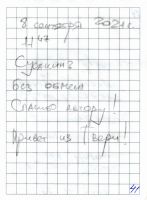 8 сентября 2021 г.
11 47
Без обмена
Спасибо автору!
Привет из Твери!
41